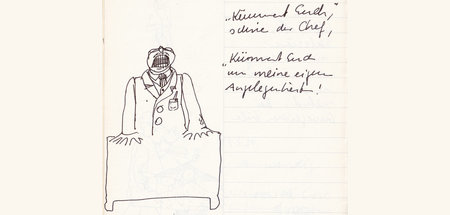 „Kümmert Euch,"
schrie der Chef,
„Kümmert Euch
um meine eigen
Angelegenheit!